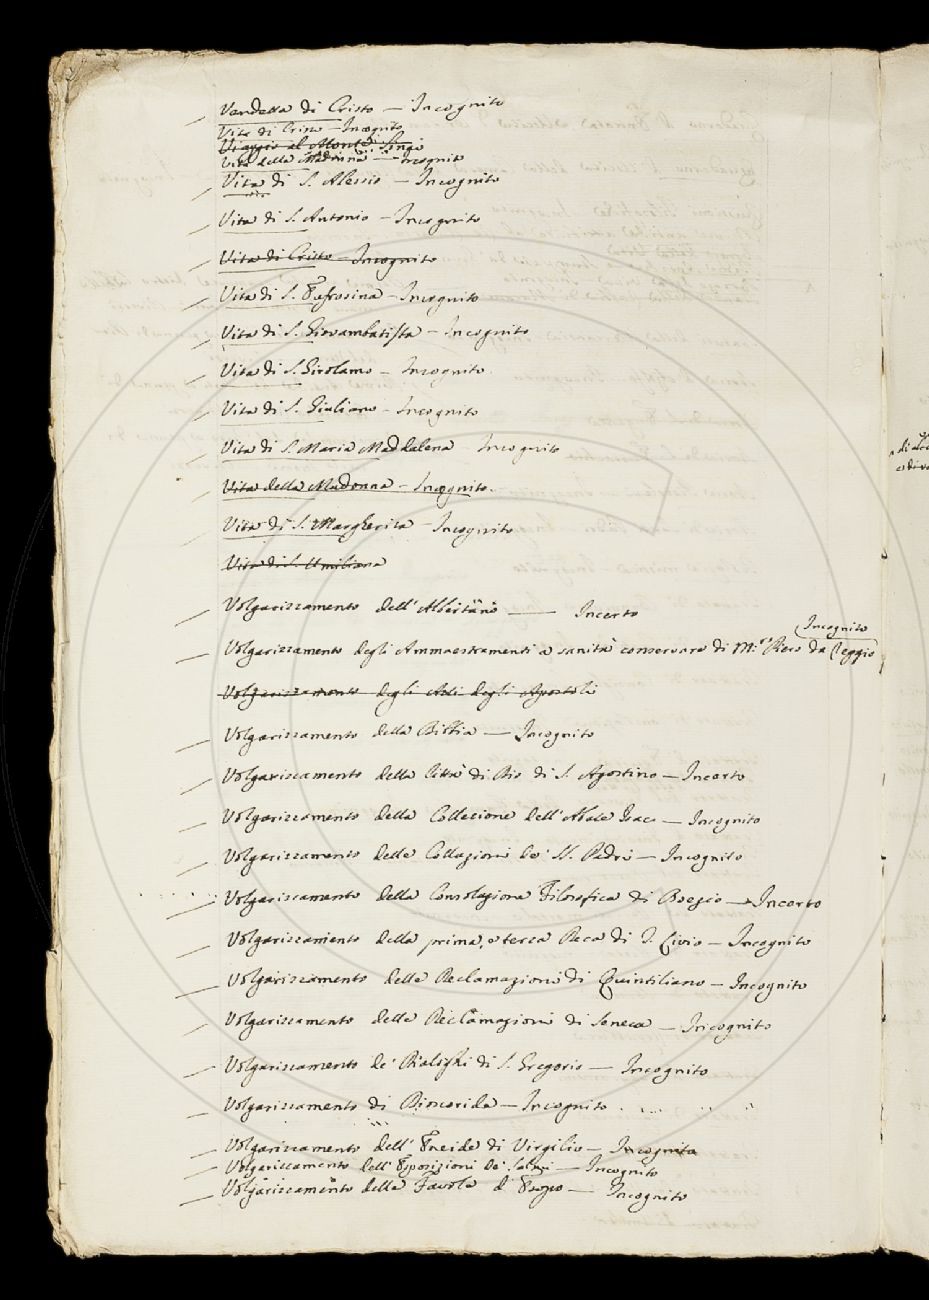 Vendetta di Cristo — Incognito
Vita di Cristo — Incognito
Viaggio al Monte Sinai
Vita della Madonna — Incognito
Vita di S. Alessio — Incognito
Vita di S. Antonio — Incognito
Vita di Cristo — Incognito
Vita di S. Eufrosina — Incognito
Vita di S. Giovambatista — Incognito
Vita di S. Girolamo — Incognito
Vita di S. Giuliano — Incognito
Vita di S. Maria Maddalena — Incognito
Vita della Madonna — Incognito.
Vita di S. Margherita — Incognito
Vita di S. Umiliana
Volgarizzamento dell'Albertano — Incerto
Incognito
Volgarizzamento degli Ammaestramenti a sanità conservare di M.ro Piero da Reggio
Volgarizzamento degli Atti degli Apostoli
Volgarizzamento della Bibbia — Incognito
Volgarizzamento della Città di Dio di S. Agostino — Incerto
Volgarizzamento della Collezione dell'Abate Isaac — Incognito
Volgarizzamento delle Collazioni de' SS. Padri — Incognito
Volgarizzamento della Consolazione Filosofica di Boezio — Incerto
Volgarizzamento della prima, e terza Deca di T. Livio — Incognito
Volgarizzamento delle Declamazioni di Quintiliano — Incognito
Volgarizzamento delle Declamazioni di Seneca — Incognito
Volgarizzamento de' Dialoghi di S. Gregorio — Incognito
Volgarizzamento di Dioscoride — Incognito
Volgarizzamento dell'Eneide di Virgilio — Incognito
Volgarizzamento dell'Esposizioni de' Salmi — Incognito
Volgarizzamento delle Favole d'Esopo — Incognito